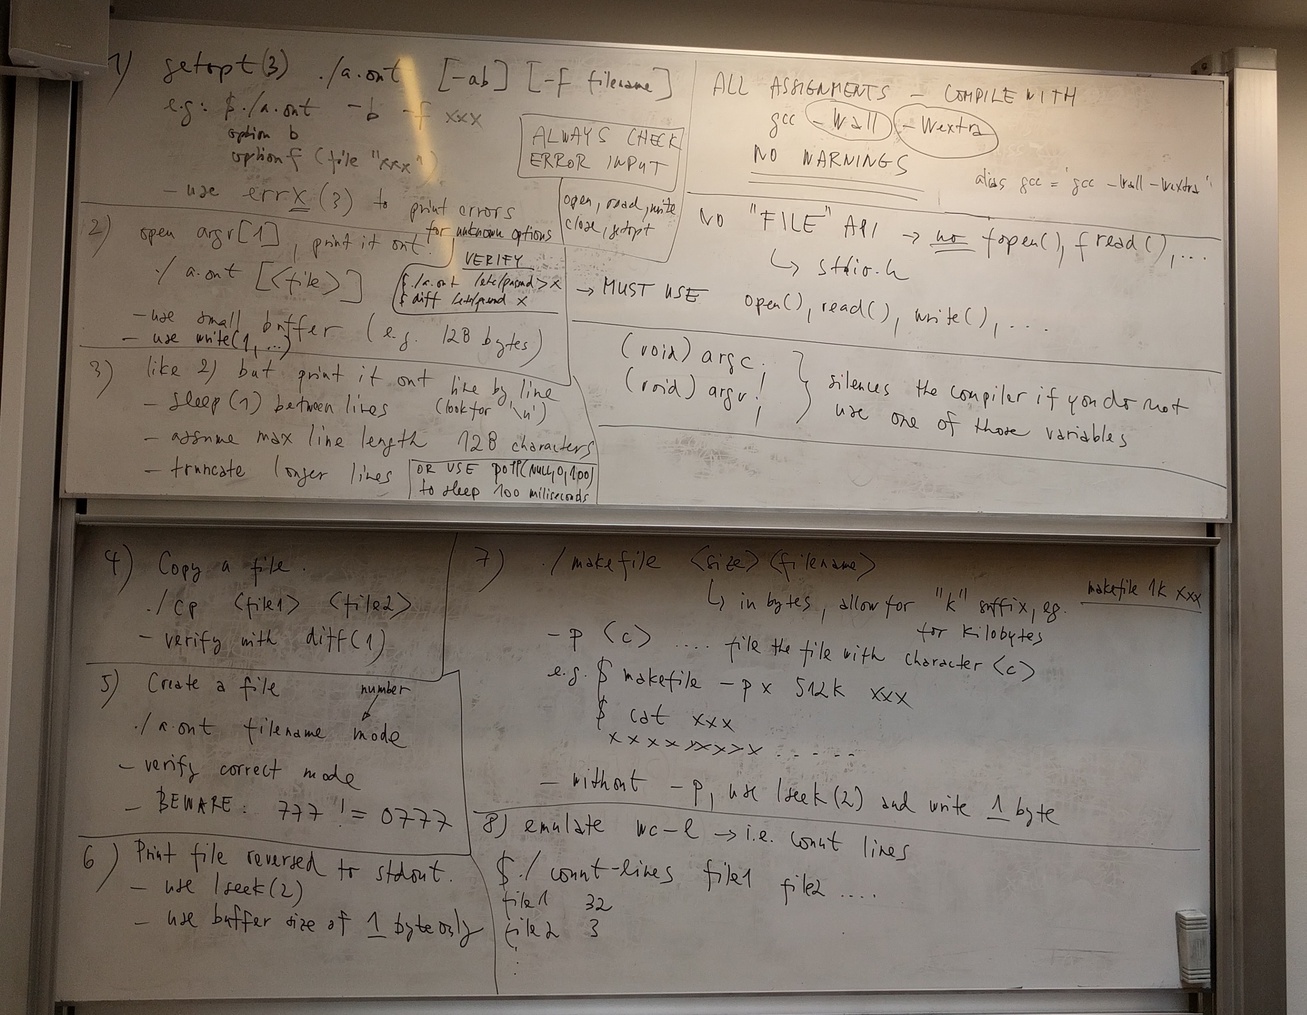 1) getopt(3) ./a.out [-ab] [-f filename]
e.g: $ ./a.out -b -f xxx
option b
option f (file "xxx")
- use errx(3) to print errors
for unknown options
ALWAYS CHECK
ERROR INPUT
open, read, write
close, getopt
2) open argv[1], print it out.
./a.out [<file>]
VERIFY
$ ./a.out /etc/passwd > x
$ diff /etc/passwd x
- use small buffer (e.g. 128 bytes)
- use write(1, ...)
3) like 2) but print it out line by line
(look for '\n')
- sleep(1) between lines
- assume max line length 128 characters
- truncate longer lines
OR USE poll(NULL, 0, 100)
to sleep 100 miliseconds
ALL ASSIGNMENTS - COMPILE WITH
gcc -Wall -Wextra
NO WARNINGS
alias gcc='gcc -Wall -Wextra'
NO "FILE" API → no fopen(), fread(), ...
↳ stdio.h
→ MUST USE open(), read(), write(), ...
(void) argc;
(void) argv;
} silences the compiler if you do not
use one of those variables
4) Copy a file.
./cp <file1> <file2>
- verify with diff(1)
5) Create a file
number
./a.out filename mode
- verify correct mode
- BEWARE: 777 != 0777
6) Print file reversed to stdout.
- use lseek(2)
- use buffer size of 1 byte only
7) ./makefile <size> <filename>
↳ in bytes, allow for "k" suffix, eg. makefile 1k xxx
for kilobytes
-p <c> .... file the file with character <c>
e.g. $ makefile -p x 512k xxx
$ cat xxx
xxxxxxxxx.....
- without -p, use lseek(2) and write 1 byte
8) emulate wc -l → i.e. count lines
$ ./count-lines file1 file2 ....
file1 32
file2 3
: